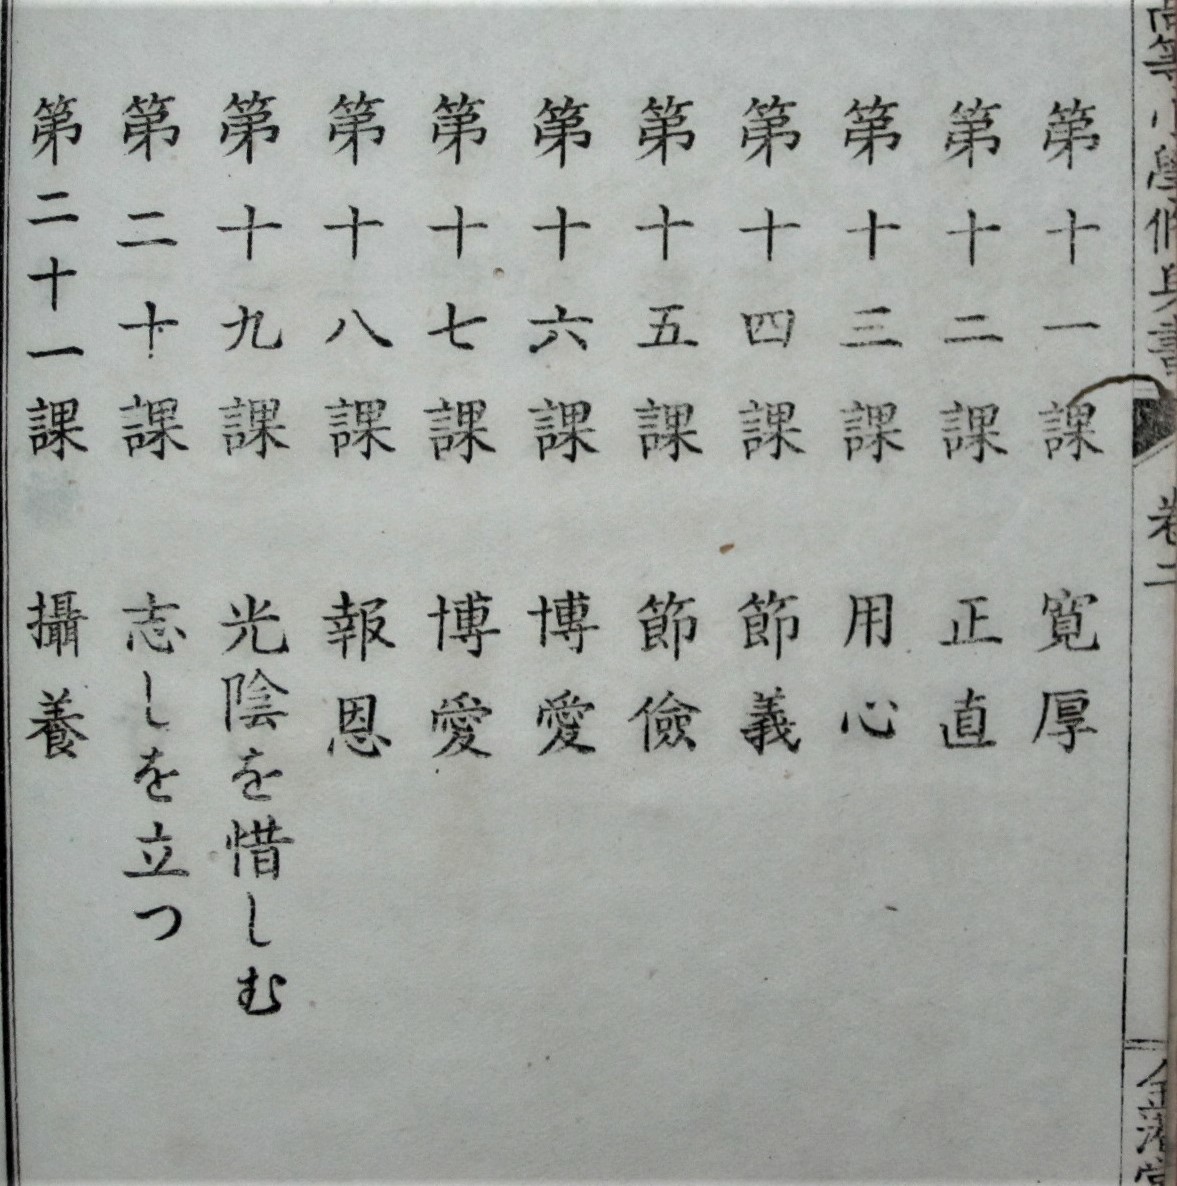 高等小學修身書 卷二
第十一課 寛厚
第十二課 正直
第十三課 用心
第十四課 節義
第十五課 節儉
第十六課 博愛
第十七課 博愛
第十八課 報恩
第十九課 光陰を惜しむ
第二十課 志しを立つ
第二十一課 攝養